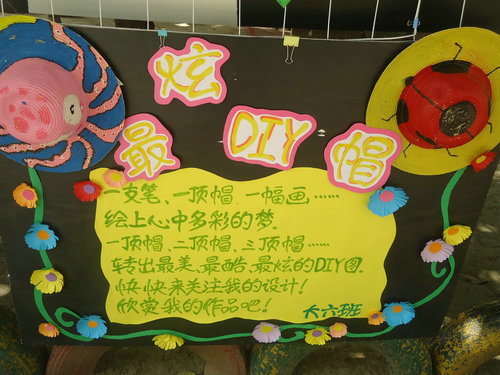 炫
最 DIY 帽
一支笔、一顶帽、一幅画,……
绘上心中多彩的梦。
一顶帽、二顶帽、三顶帽……
转出最美、最酷、最炫的DIY图。
快快来关注我的设计!
欣赏我的作品吧!
大六班